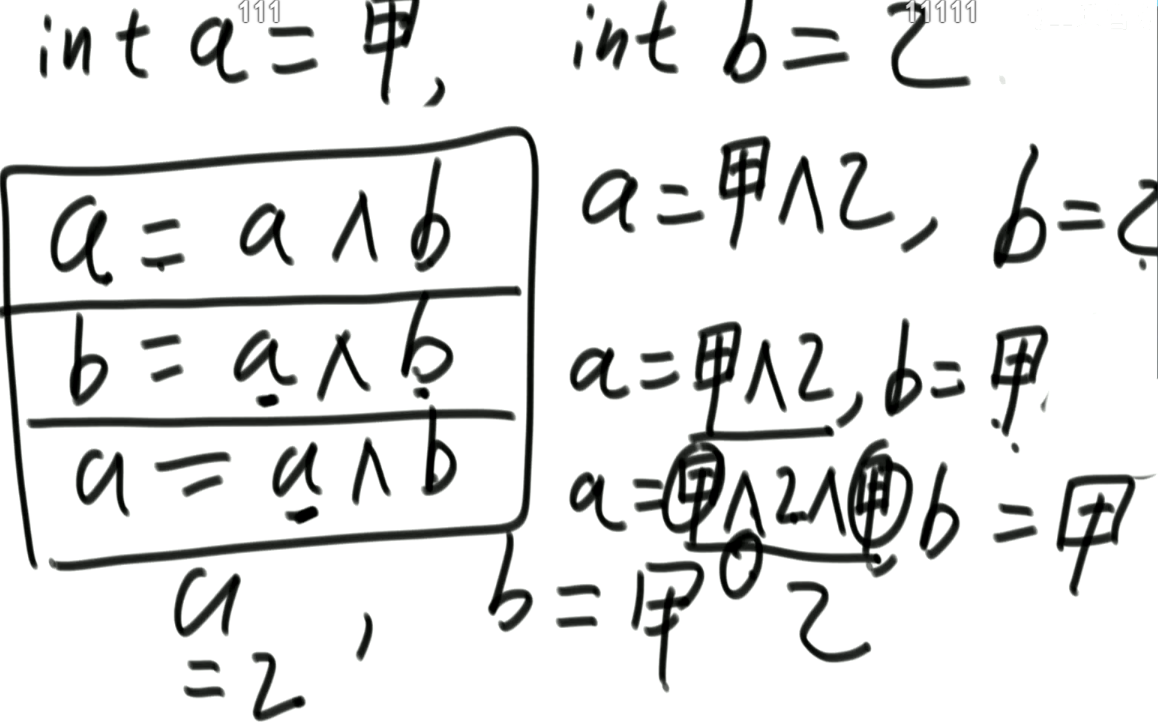 111 11111
int a = 甲, int b = 乙
a = a ∧ b
b = a ∧ b
a = a ∧ b
a = 甲∧乙, b = 乙
a = 甲∧乙, b = 甲
a = 甲∧乙∧甲 b = 甲
0 乙
a = 乙, b = 甲